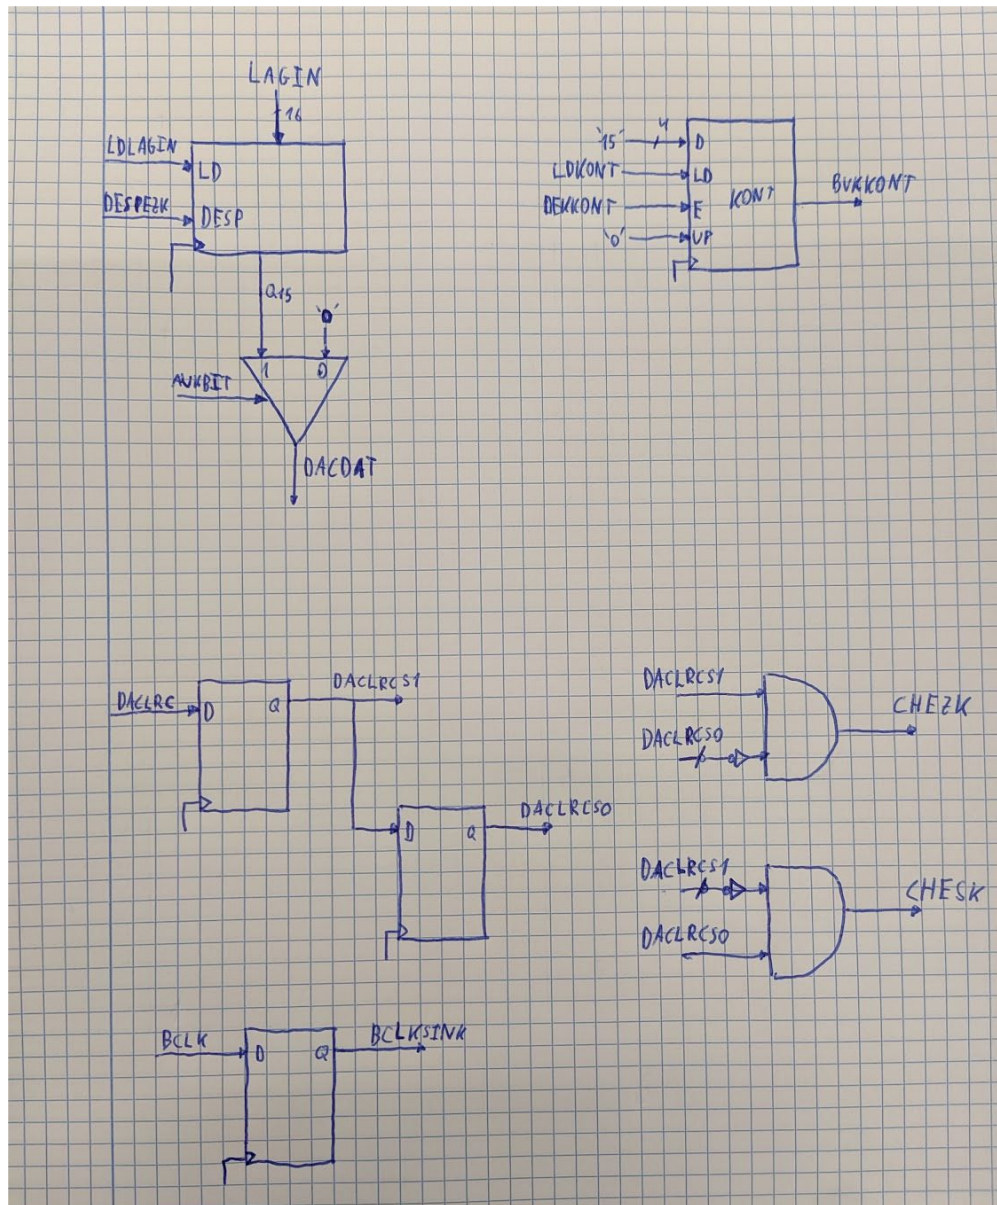 LAGIN
16
LDLAGIN
LD
DESPEZK
DESP
Q15
'0'
1 0
AUKBIT
DACDAT
'15' 4 D
LDKONT LD
DEKKONT E
KONT
BUKKONT
'0' UP
DACLRC D Q DACLRCS1
D Q DACLRCS0
DACLRCS1
DACLRCS0
CHEZK
DACLRCS1
DACLRCS0
CHESK
BCLK D Q BCLKSINK